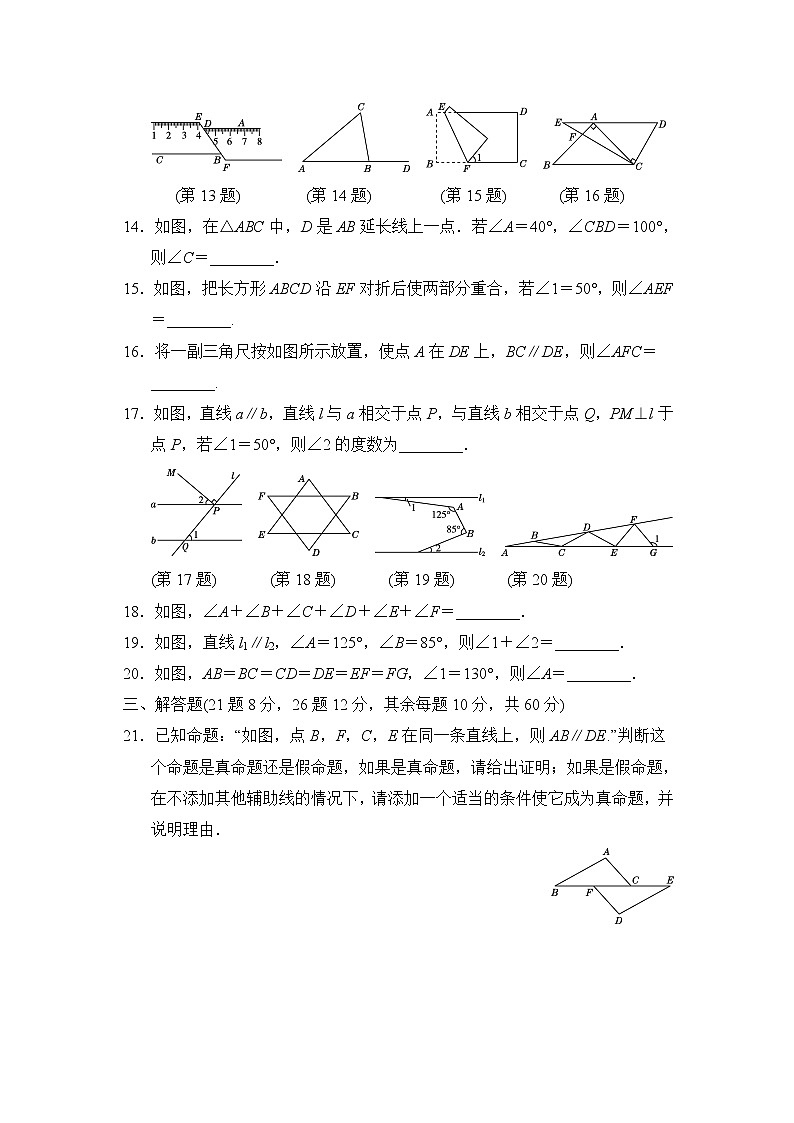 E D A
1 2 3 4 5 6 7 8
C B F
C
A B D
A E D
B F 1 C
E A D
F
B C
(第13题) (第14题) (第15题) (第16题)
14．如图，在△ABC中，D是AB延长线上一点．若∠A＝40°，∠CBD＝100°，
则∠C＝________．
15．如图，把长方形ABCD沿EF对折后使两部分重合，若∠1＝50°，则∠AEF
＝________.
16．将一副三角尺按如图所示放置，使点A在DE上，BC∥DE，则∠AFC＝
________.
17．如图，直线a∥b，直线l与a相交于点P，与直线b相交于点Q，PM⊥l于
点P，若∠1＝50°，则∠2的度数为________．
M l
a 2 P
b Q 1
A
F B
E C
D
l1
1 A
125°
85° B
2 l2
A B C D E F G 1
(第17题) (第18题) (第19题) (第20题)
18．如图，∠A＋∠B＋∠C＋∠D＋∠E＋∠F＝________．
19．如图，直线l1∥l2，∠A＝125°，∠B＝85°，则∠1＋∠2＝________．
20．如图，AB＝BC＝CD＝DE＝EF＝FG，∠1＝130°，则∠A＝________．
三、解答题(21题8分，26题12分，其余每题10分，共60分)
21．已知命题：“如图，点B，F，C，E在同一条直线上，则AB∥DE.”判断这
个命题是真命题还是假命题，如果是真命题，请给出证明；如果是假命题，
在不添加其他辅助线的情况下，请添加一个适当的条件使它成为真命题，并
说明理由．
A
B F C E
D